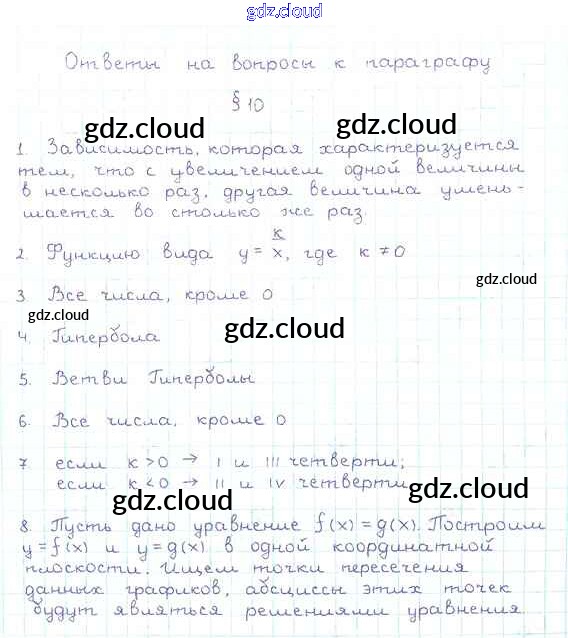 gdz.cloud
Ответы на вопросы к параграфу
§ 10
gdz.cloud gdz.cloud
1. Зависимость, которая характеризуется
тем, что с увеличением одной величины
в несколько раз, другая величина умень-
шается во столько же раз.
2. Функцию вида y = k/x, где k ≠ 0
gdz.cloud
3. Все числа, кроме 0
gdz.cloud
4. Гипербола
gdz.cloud
5. Ветви Гиперболы
6. Все числа, кроме 0
7 если k > 0 → I и III четверти;
если k < 0 → II и IV четверти
gdz.cloud
gdz.cloud
8. Пусть дано уравнение f(x) = g(x). Построим
y = f(x) и y = g(x) в одной координатной
плоскости. Ищем точки пересечения
данных графиков, абсциссы этих точек
будут являться решениями уравнения.
gdz.cloud gdz.cloud